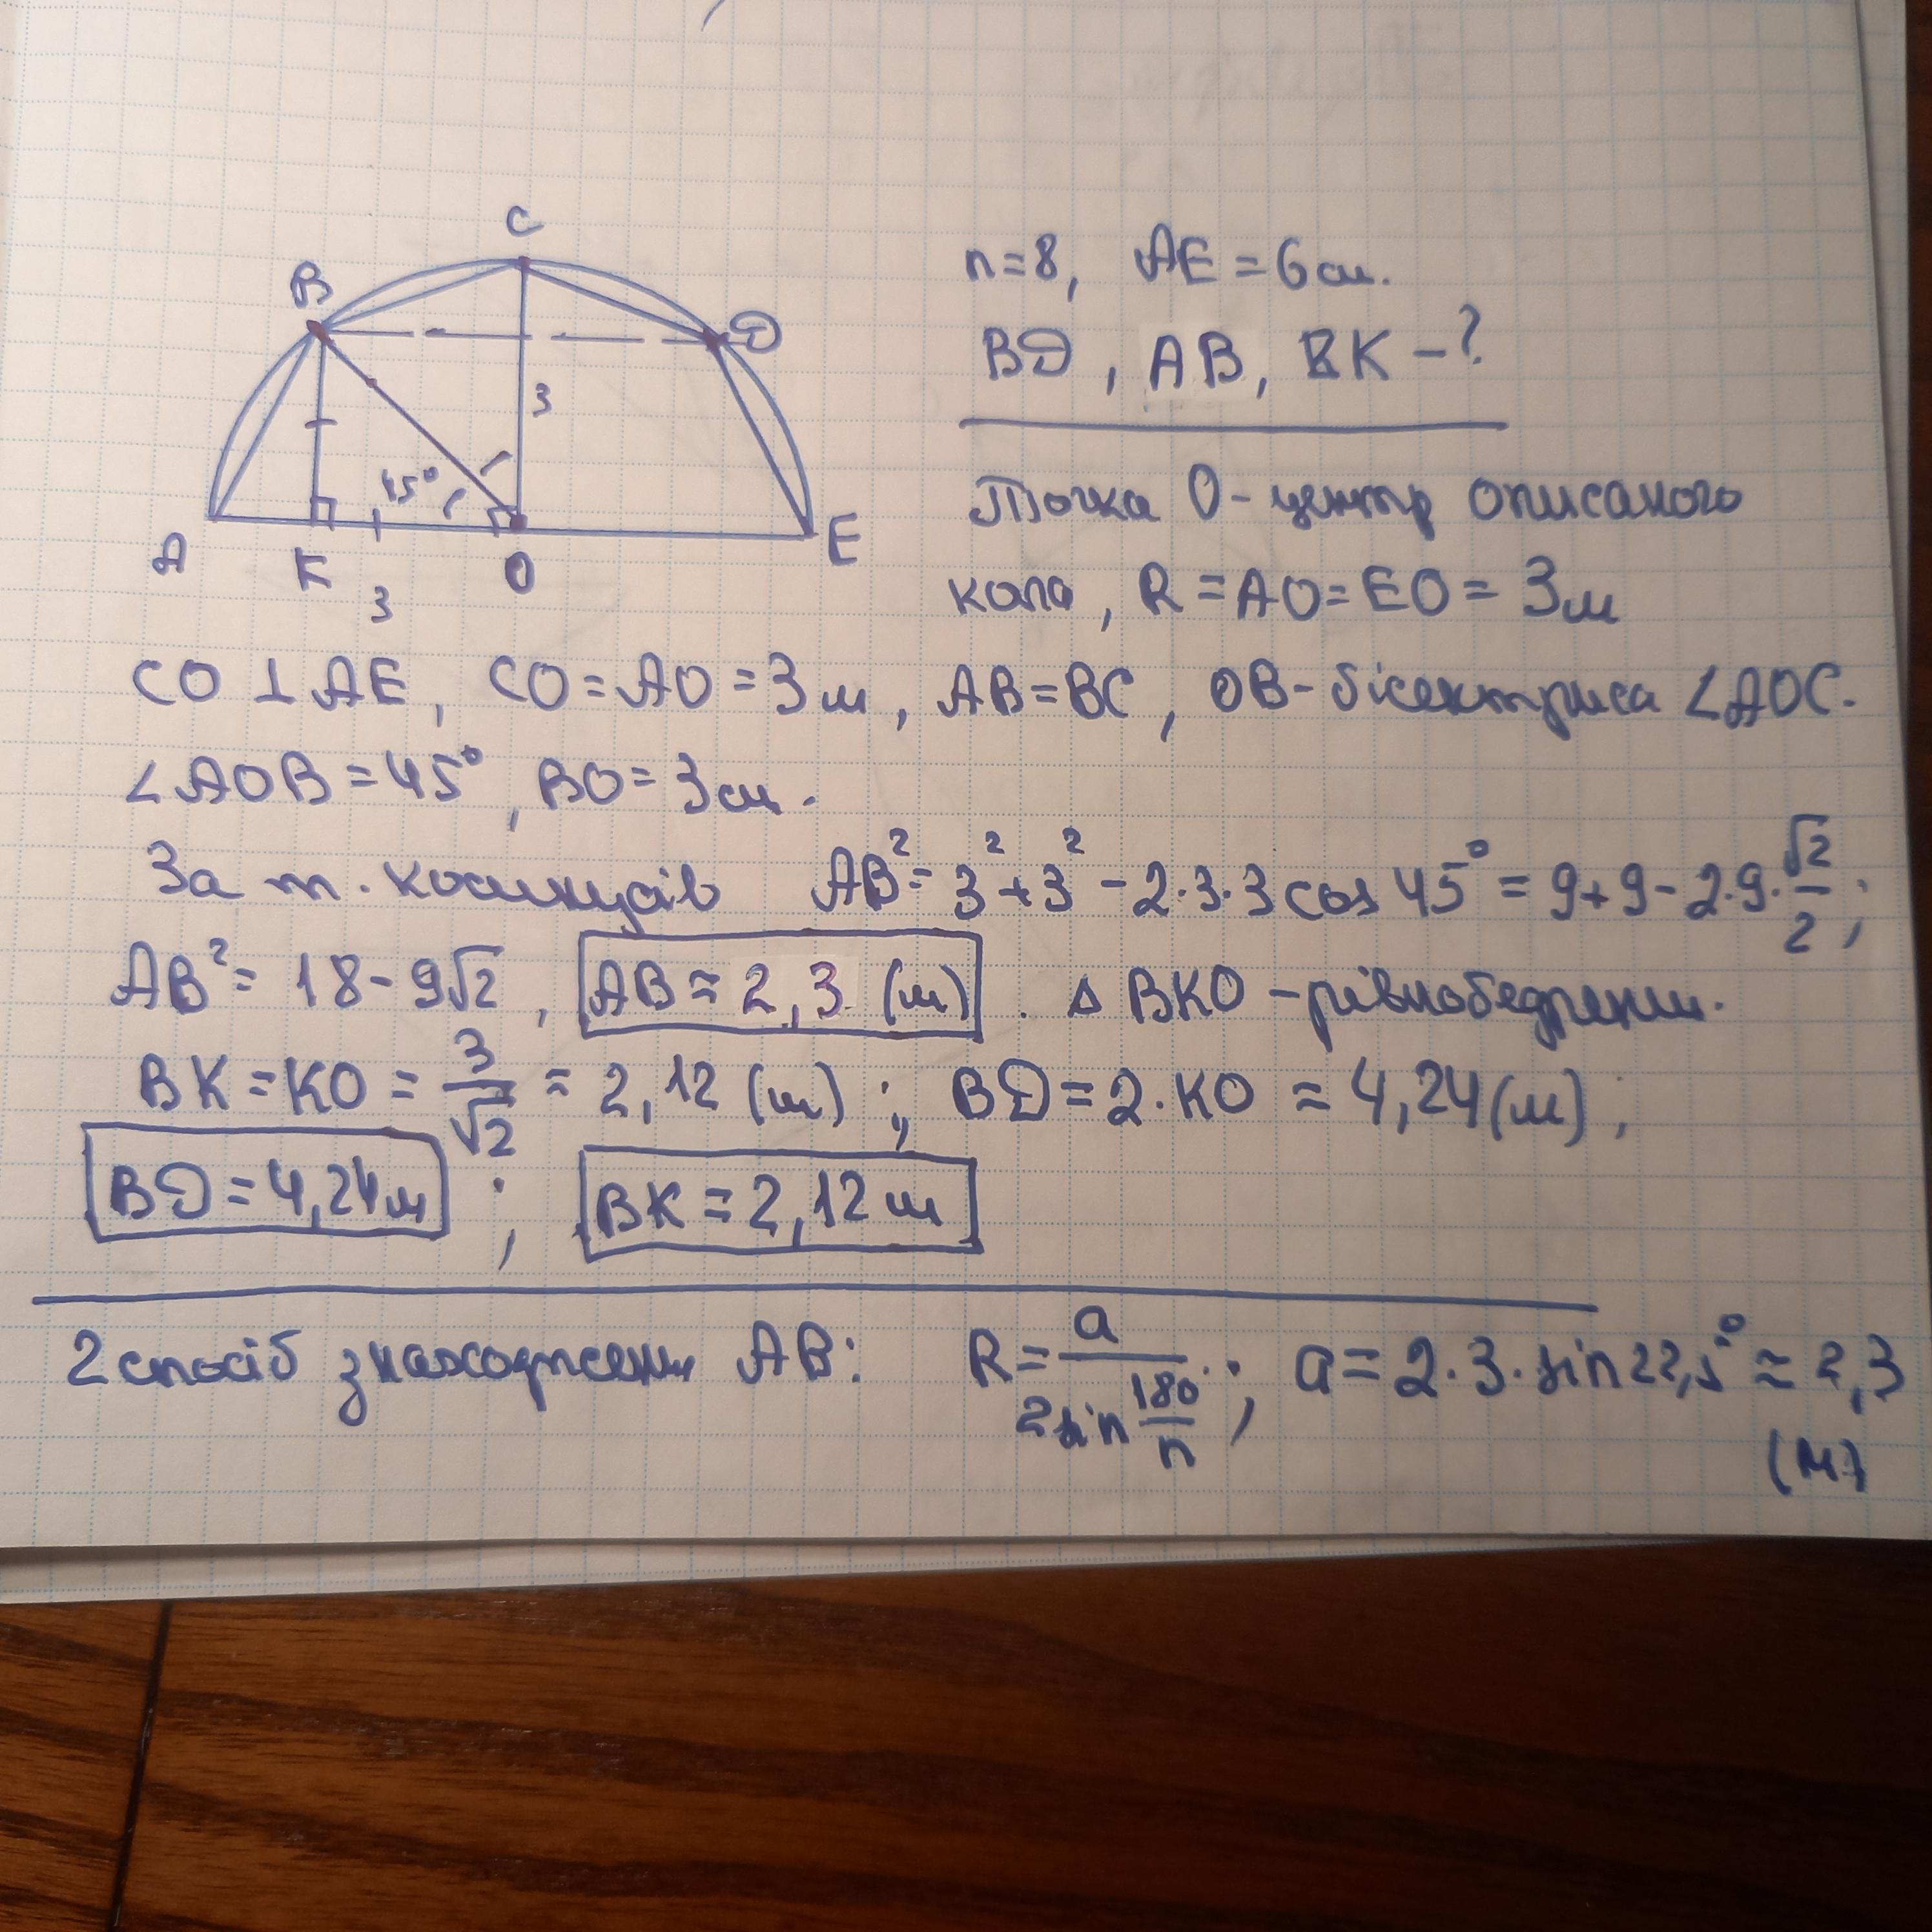 C
B
D
3
45°
A
K
O
E
3
n=8, AE = 6 см.
BD, AB, BK - ?
Точка O - центр описаного
кола, R = AO = EO = 3м
CO ⊥ AE, CO = AO = 3 м, AB = BC, OB - бісектриса ∠AOC.
∠AOB = 45°, BO = 3 см.
За т. косинусів AB² = 3² + 3² - 2·3·3 cos 45° = 9 + 9 - 2·9·√2/2;
AB² = 18 - 9√2, AB ≈ 2,3 (м). Δ BKO - рівнобедрений.
BK = KO = 3/√2 = 2,12 (м); BD = 2·KO ≈ 4,24 (м);
BD = 4,24 м; BK = 2,12 м
2 спосіб знаходження AB: R = a/(2 sin 180°/n); a = 2·3·sin 22,5° ≈ 2,3
(м)